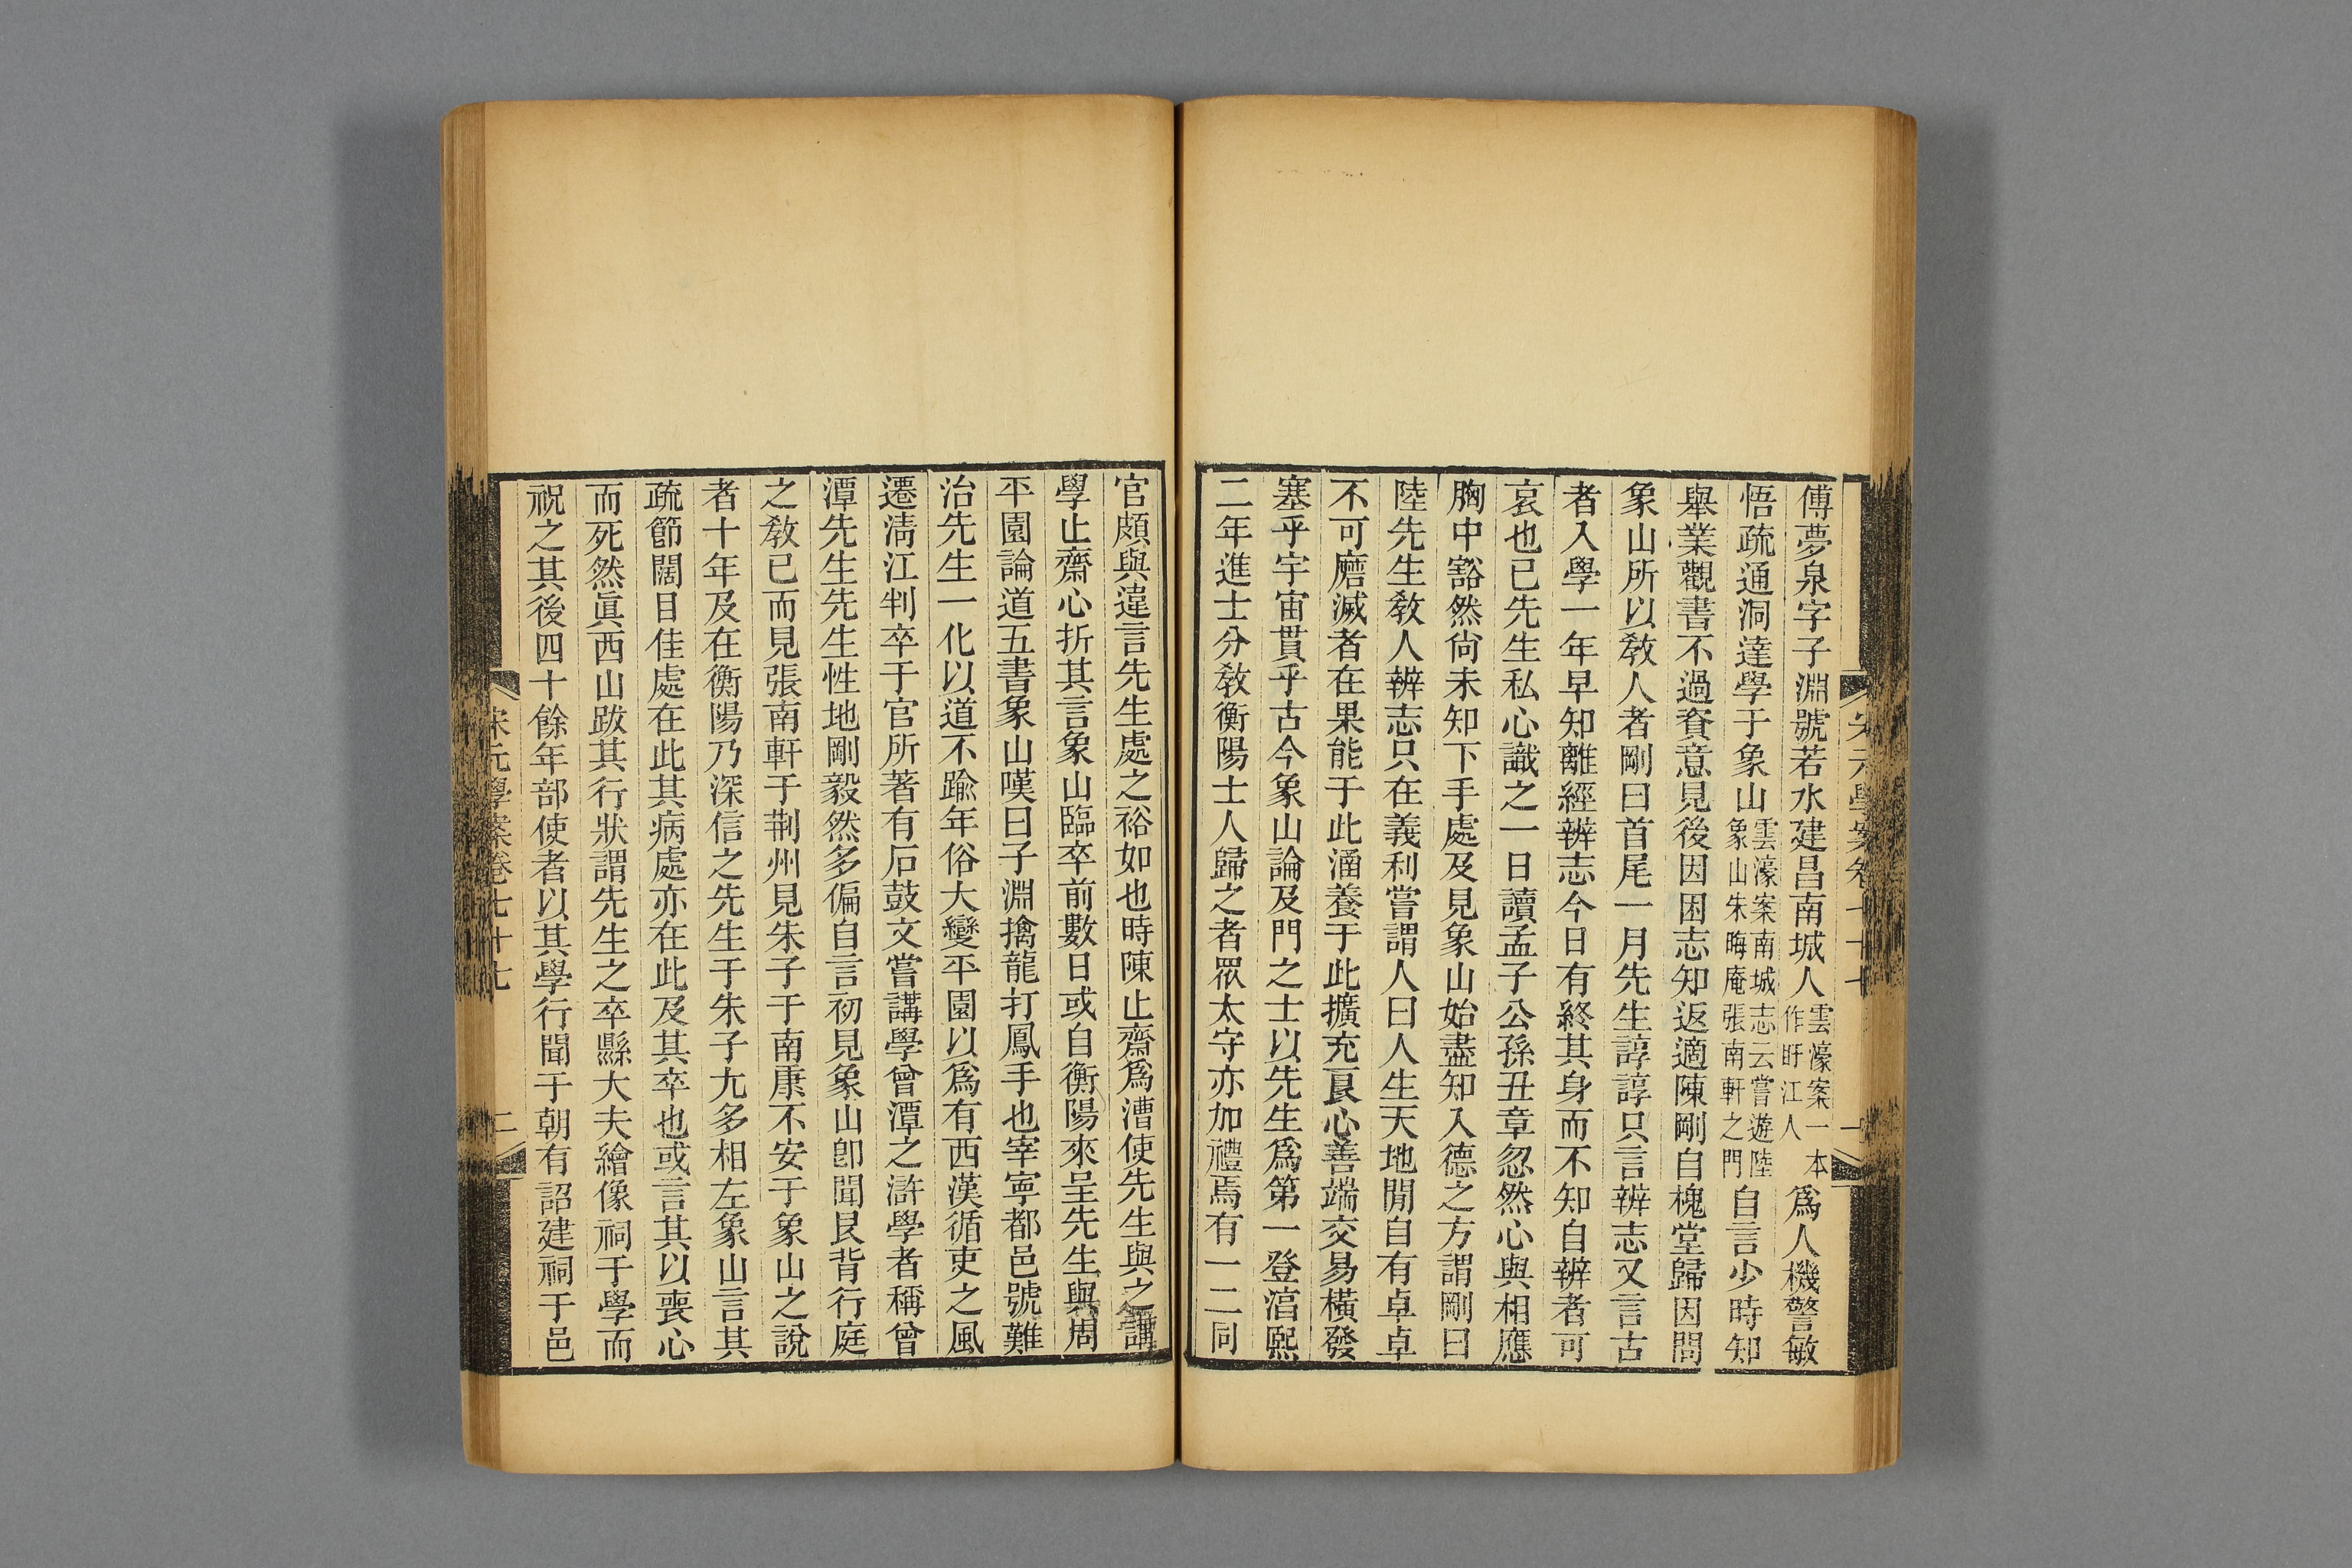 傅夢泉字子淵號若水建昌南城人雲濠案一本作盱江人爲人機警敏
悟疏通洞達學于象山雲濠案南城志云嘗遊陸象山朱晦庵張南軒之門自言少時知
舉業觀書不過資意見後因困志知返適陳剛自槐堂歸因問
象山所以敎人者剛曰首尾一月先生諄諄只言辨志又言古
者入學一年早知離經辨志今日有終其身而不知自辨者可
哀也已先生私心識之一日讀孟子公孫丑章忽然心與相應
胸中豁然尙未知下手處及見象山始盡知入德之方謂剛曰
陸先生敎人辨志只在義利嘗謂人曰人生天地閒自有卓卓
不可磨滅者在果能于此涵養于此擴充良心善端交易橫發
塞乎宇宙貫乎古今象山論及門之士以先生爲第一登淳熙
二年進士分敎衡陽士人歸之者眾太守亦加禮焉有一二同
官頗與違言先生處之裕如也時陳止齋爲漕使先生與之講
學止齋心折其言象山臨卒前數日或自衡陽來呈先生與周
平園論道五書象山嘆曰子淵擒龍打鳳手也宰寧都邑號難
治先生一化以道不踰年俗大變平園以爲有西漢循吏之風
遷淸江判卒于官所著有石鼓文嘗講學曾潭之滸學者稱曾
潭先生先生性地剛毅然多偏自言初見象山卽聞艮背行庭
之敎已而見張南軒于荆州見朱子于南康不安于象山之說
者十年及在衡陽乃深信之先生于朱子尢多相左象山言其
疏節闊目佳處在此其病處亦在此及其卒也或言其以喪心
而死然眞西山跋其行狀謂先生之卒縣大夫繪像祠于學而
祝之其後四十餘年部使者以其學行聞于朝有詔建祠于邑
宋元學案卷七十七
二